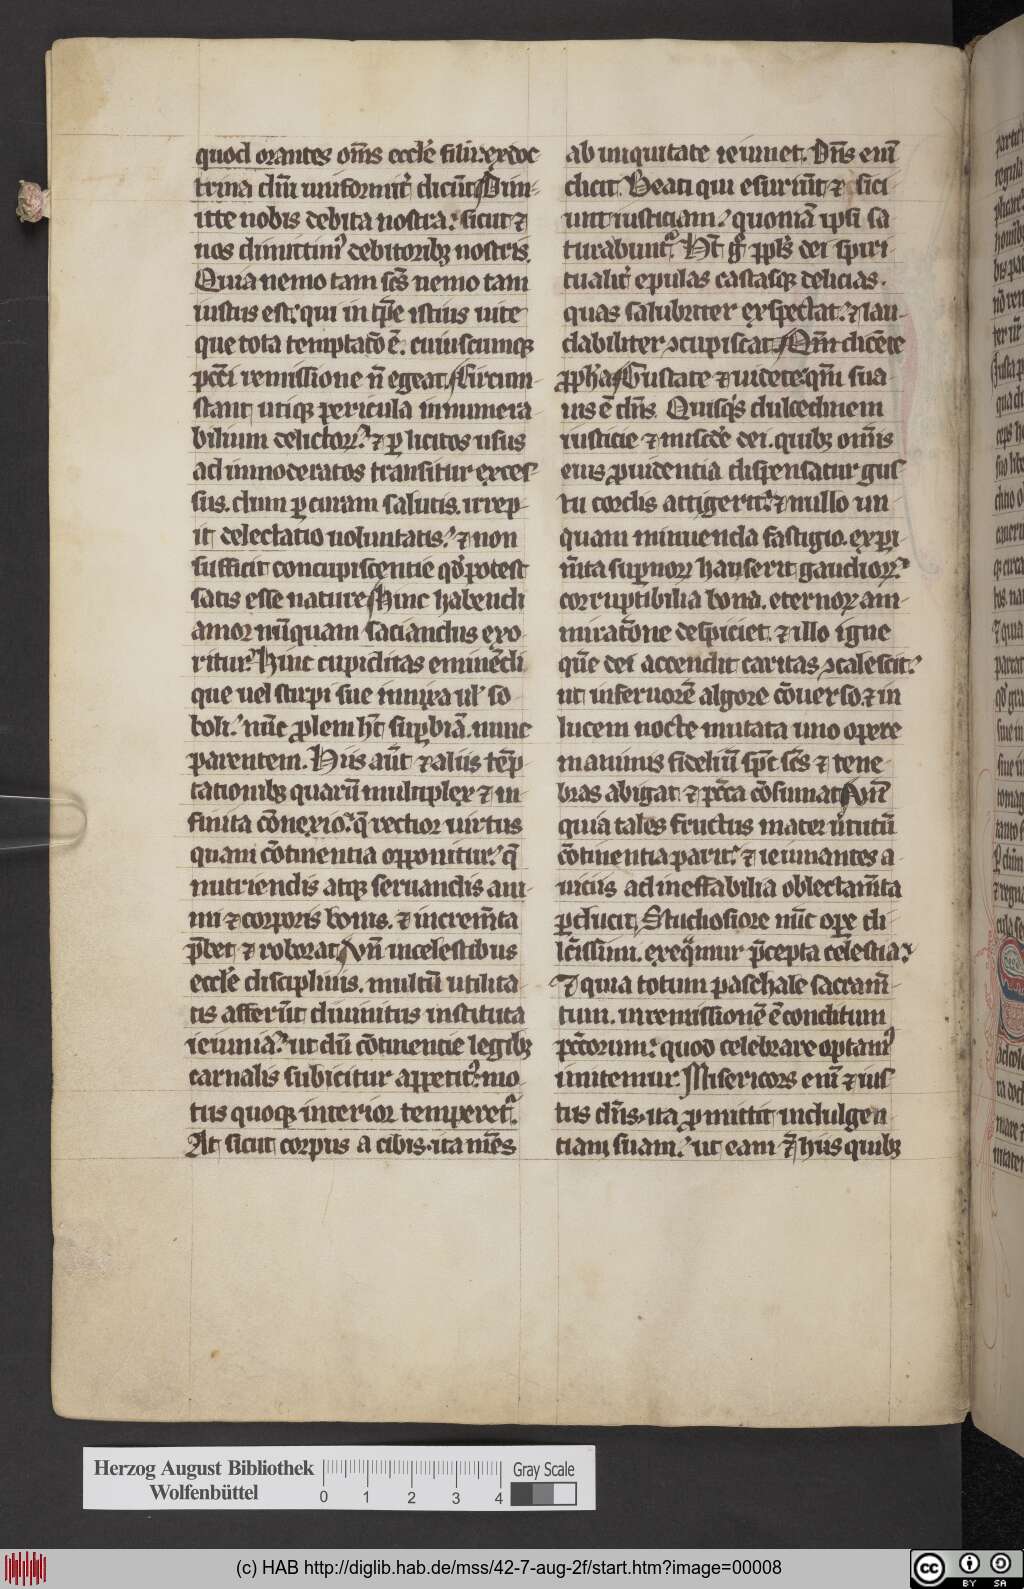 quod orantes om̄s eccl'e filii: ex doc
trina dn̄i uniformit' dicūt. Dim-
itte nobis debita nostra: sicut ⁊
nos dimittim' debitorib; nostris.
Quia nemo tam sc̄s nemo tam
iustus est: qui in tp̄e istius uite
que tota temptac̄o ē. cuiuscumq;
pcc̄i remissione n̄ egeat. Circum-
stant utiq; pericula innumera
bilium delictoꝝ: ⁊ ꝑ licitos usus
ad inmoderatos transitur exces-
sus. dum ꝑ curam salutis. irrep-
it delectatio uoluntatis: ⁊ non
sufficit concupiscentie qd' potest
satis esse nature. Hinc habendi
amor nūquam saciandus exo-
ritur: hinc cupiditas eminēdi
que uel stirpi sue innixa ul' so-
boli: nūc ꝓlem ht̄ suꝑbiā. nunc
parentem. Hiis aūt ⁊ aliis tēp-
tationib; quarū multiplex ⁊ in-
finita cōnexio: q̄ rectior uirtus
quam cōtinentia opponitur: q̄
nutriendis atq; seruandis ani-
mi ⁊ corporis bonis. ⁊ increm̄ta
p̄bet ⁊ roborat. Vn̄ in celestibus
eccl'e disciplinis. multū utilita-
tis afferūt diuinitus instituta
ieiunia: ut dū cōtinentie legib;
carnalis subicitur appetit': mo-
tus quoq; interior temperet'.
At sicut corpus a cibis. ita mēs
ab iniquitate ieiunet. Dn̄s enī
dicit. Beati qui esuriūt ⁊ siti
unt iusticiam: quoniā ipsi sa
turabunt'. Ht̄ g̊ ppl's dei spiri
tualit' epulas castasq; delicias.
quas salubriter exspectat. ⁊ lau-
dabiliter ɔcupiscat. Qm̄ dicēte
ꝓph'a. Gustate ⁊ uidete: qm̄ sua-
uis ē dn̄s. Quisq's dulcedinem
iusticie ⁊ mis'cd'e dei. quib; om̄is
eius ꝓuidentia dispensatur gus-
tu cordis attigerit: ⁊ nullo un-
quam minuenda fastigio. exꝑi-
m̄ta suꝑnoꝝ hauserit gaudioꝝ:
corruptibilia bona. eternoꝝ am-
mirat̄one despiciet. ⁊ illo igne
quē dei accendit caritas ɔcalescit:
ut in feruorē algore cōuerso. ⁊ in
lucem nocte mutata uno opere
mauimis fideliū sp̄c sc̄s ⁊ tene-
bras abigat ⁊ pcc̄a cōsumat. Vn̄
quia tales fructus mater u'tutū
cōtinentia parit: ⁊ ieiunantes a-
nimis ad ineffabilia oblectam̄ta
ꝑducit. Studiosiore nūc oꝑe di-
lc̄issimi. exeq̄mur p̄cepta celestia:
⁊ quia totum paschale sacram̄-
tum. in remissionē ē conditum
pcc̄orum: quod celebrare optam'
imitemur. Misericors enī ⁊ ius-
tus dn̄s. ita ꝓmittit indulgen-
tiam suam: ut eam ⁊ hiis quib;
Herzog August Bibliothek
Wolfenbüttel
0 1 2 3 4
Gray Scale
(c) HAB http://diglib.hab.de/mss/42-7-aug-2f/start.htm?image=00008
cc BY SA